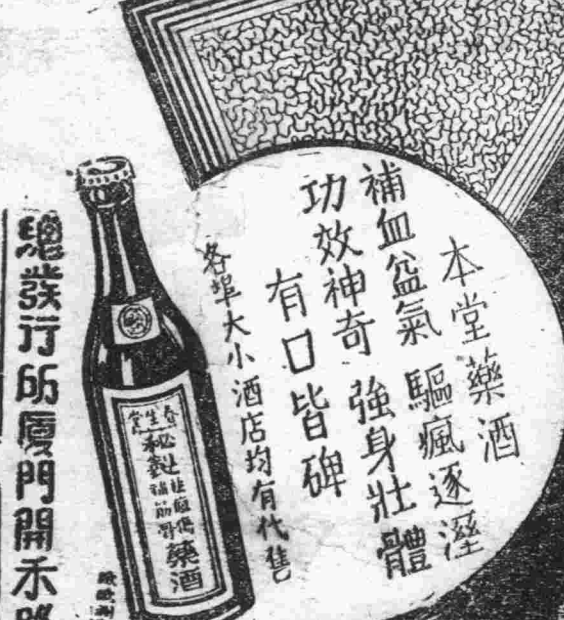 本堂藥酒
補血益氣 驅瘋逐溼
功效神奇 強身壯體
有口皆碑
各埠大小酒店均有代售
春生堂
秘製
補筋骨
藥酒
總發行所廈門開禾路